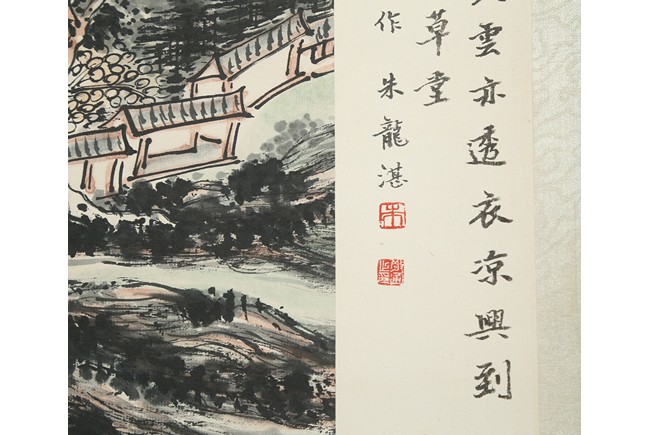 雲亦透衣凉興到
草堂
作 朱龍湛
朱